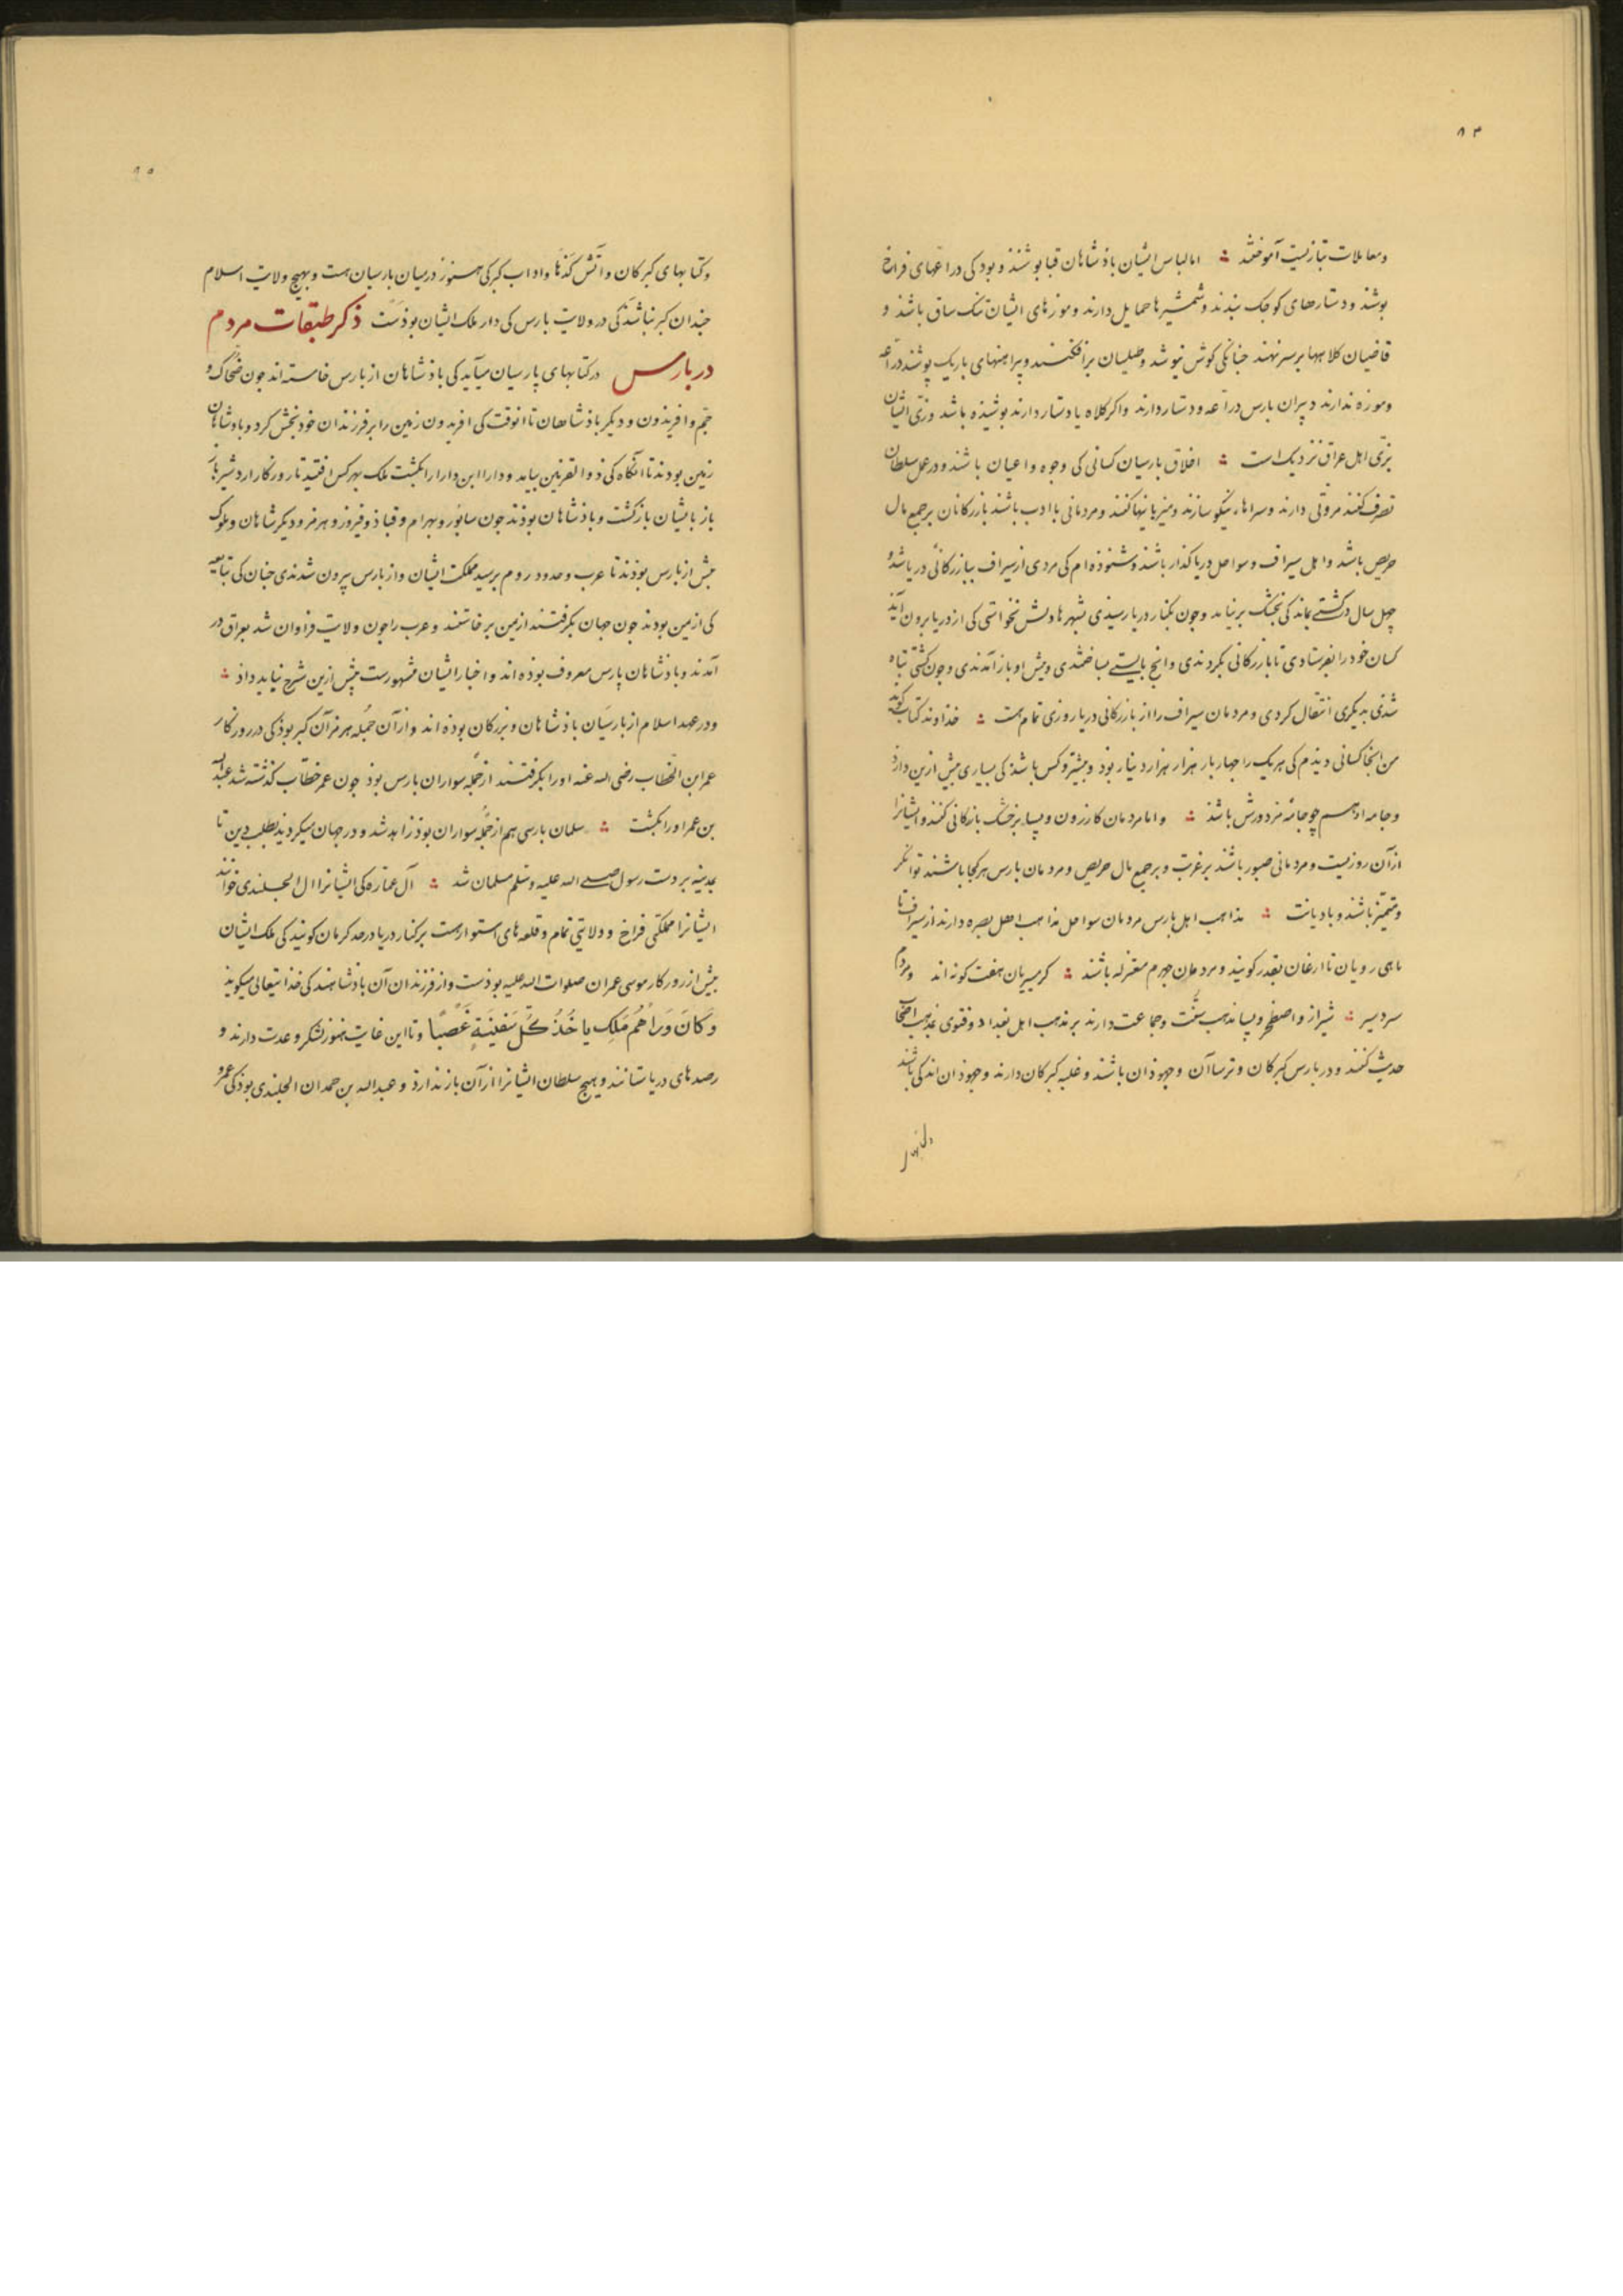 ۸۴
ومعاملات بتازیست آموختند ؞ اما لباس ایشان باذشاهان قبا پوشند و بود کی دراعهای فراخ
پوشند و دستارهای کوجک بندند و شمشیرها حمایل دارند و موزهای ایشان تنک ساق باشذ و
قاضیان کلاهها بر سر نهند جنانکی کوش بپوشد و طیلسان برافکنند و پیراهنهای باریک پوشند دراعه
وموزه ندارند دبیران بارس دراعه و دستار دارند واکر کلاه یا دستار دارند پوشیذه باشد وزی ایشان
بزی اهل عراق نزدیک است ؞ اخلاق بارسیان کسانی کی وجوه و اعیان باشند و در عمل سلطان
تصرف کنند مروتی دارند وسراهاء نیکو سازند و میزبانیها کنند و مردمانی با ادب باشند بازرکانان بر جمع مال
حریص باشد و اهل سیراف و سواحل دریا کذار باشند و شنوذه‌ام کی مردی از سیراف ببازرکانی دریا شد و
چهل سال در کشتی بماند کی بخشک بر نیامد وجون بکنار دریا رسیذی بشهرها دلش نخواستی کی از دریا برون آید
کسان خود را بفرستادی تا بازرکانی بکردندی وانج بایستی بساختندی و پیش او باز آمدندی و جون کشتی تباه
شدی بدیکری انتقال کردی و مردمان سیراف را از بازرکانی دریا روزی تمام هست ؞ خذاوند کتاب کوید
من انجا کسانی دیذم کی هر یک را جهار بار هزار هزار دینار بوذ و بیشتر و کس باشذ کی بسیاری بیش ازین دارد
و جامه او هم چو جامهٔ مزدورش باشذ ؞ و اما مردمان کازرون و بسا بر خشک بازرکانی کنند و ایشانرا
از آن روزیست و مردمانی صبور باشند بر غربت و بر جمع مال حریص و مردمان بارس هر کجا باشند توانکر
و متمیز باشند و با دیانت ؞ مذاهب اهل بارس مردمان سواحل مذاهب اهل بصره دارند از سیراف تا
ماهی رویان تا ارغان بقدر کویند و مردمان جهرم معتزله باشند ؞ کرمسیریان هفت کونه‌اند و مردم
سردسیر ؞ شیراز و اصطخر و بسا مذهب سنت و جماعت دارند بر مذهب اهل بغداد و فتوی بمذهب اصحاب
حدیث کنند و در بارس کبرکان و ترساآن و جهوذان باشند و غلبه کبرکان دارند و جهوذان اندکی باشند
۸۵
وکتابهای کبرکان و آتش کذها و اداب کبرکی هنوز در میان بارسیان هست و بهیچ ولایت اسلام
جندان کبر نباشذ کی در ولایت بارس کی دار ملک ایشان بوذست ذکر طبقات مردم
در بارس در کتابهای پارسیان میآید کی باذشاهان از بارس خاسته‌اند جون ضحاک و
جم و افریذون و دیکر باذشاهان تا انوقت کی افریدون زمین را بر فرزندان خود بخش کرد و باذشاهان
زمین بودند تا انکاه کی ذو القرنین بیامد و دارا ابن دارا را بکشت ملک بهر کس افتید تا روزکار اردشیر باز
باز بایشان بازکشت و باذشاهان بوذند جون سابور و بهرام و قباذ و فیروز و هرمز و دیکر شاهان و ملوک
بیش از بارس بوذند تا عرب و حدود روم برسید مملکت ایشان و از بارس بیرون شدندی جنان کی تبابعه
کی از یمن بودند جون جهان بکرفتند از یمن برخاستند و عرب را جون ولایت فراوان شد بعراق در
آمدند و باذشاهان پارس معروف بوذه‌اند و اخبار ایشان مشهورست بیش ازین شرح نباید داذ ؞
و در عهد اسلام از بارسیان باذشاهان و بزرکان بوذه‌اند و از آن جمله هرمزان کبر بوذ کی در روزکار
عمر ابن الخطاب رضی الله عنه او را بکرفتند از جمله سواران بارس بوذ جون عمر خطاب کذشته شد عبدالله
بن عمر او را بکشت ؞ سلمان بارسی هم از جمله سواران بوذ زاهد شد و در جهان میکردید بطلب دین تا
بمدینه بر دست رسول صلی الله علیه وسلم مسلمان شد ؞ آل عماره کی ایشانرا ال الجلندی خوانند
ایشانرا مملکتی فراخ و ولایتی تمام و قلعه‌های استوارست بر کنار دریا در حد کرمان کویند کی ملک ایشان
بیش از روزکار موسی عمران صلوات الله علیه بوذست و از فرزندان آن باذشاهند کی خذا تیعالی میکوید
وَکَانَ وَرَاهُمْ مَلِک یاخُذُ کُلَّ سَفِینَةٍ غَصْبًا و تا این غایت هنوز لشکر و عدت دارند و
رصدهای دریا ستانند و هیچ سلطان ایشانرا از آن باز ندارد و عبدالله بن حمدان الجلندی بوذ کی عمرو